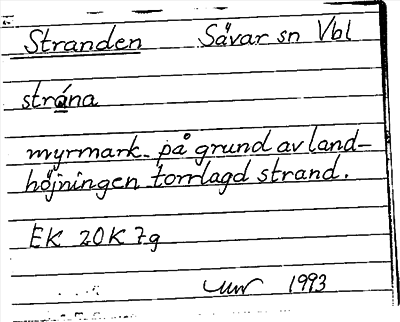 Stranden Sävar sn Vbl
strána
myrmark på grund av land-
höjningen torrlagd strand.
EK 20K 7g
1993